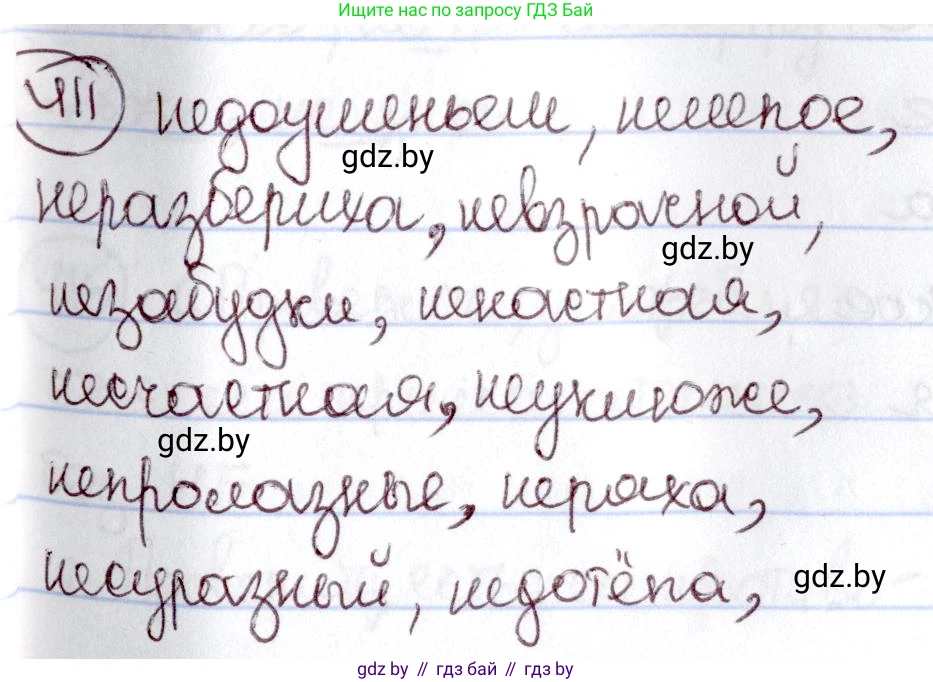 Ищите нас по запросу ГДЗ Бай
411 недоуменьем, нелепое,
gdz.by
неразбериха, невзрачной,
gdz.by
незабудки, ненастная,
несчастная, неуклюже,
gdz.by
непролазные, неряха,
несуразный, недотёпа,
gdz.by
gdz.by // гдз бай // гдз by